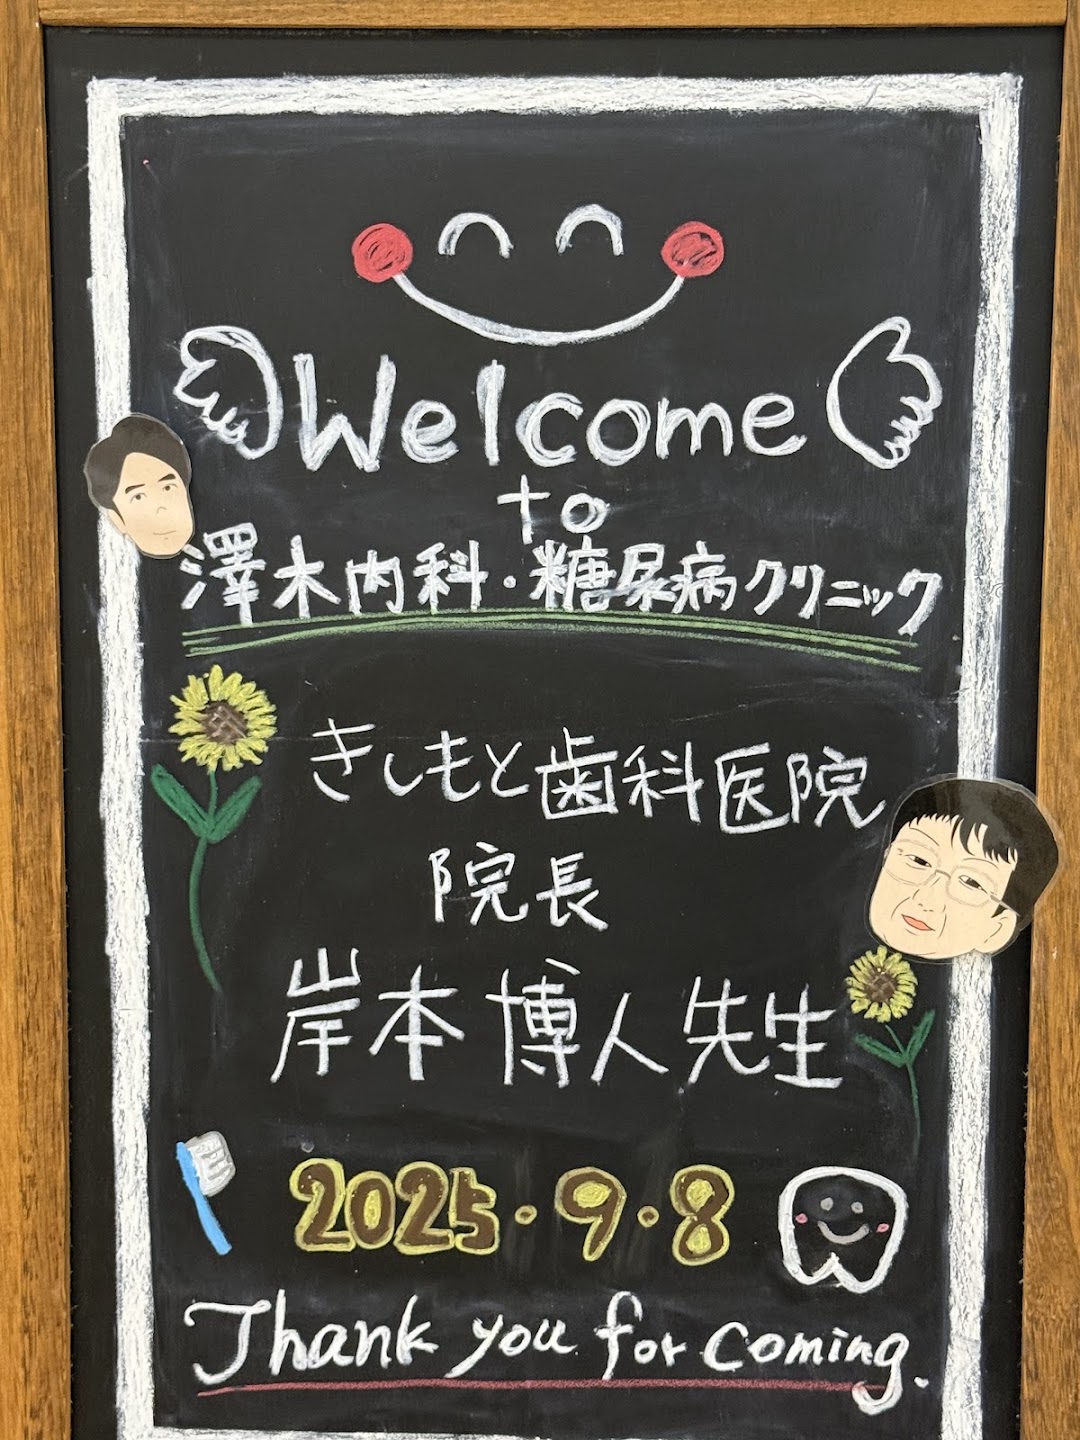 Welcome
to
澤木内科・糖尿病クリニック
きしもと歯科医院
院長
岸本 博人先生
2025・9・8
Thank you for coming.